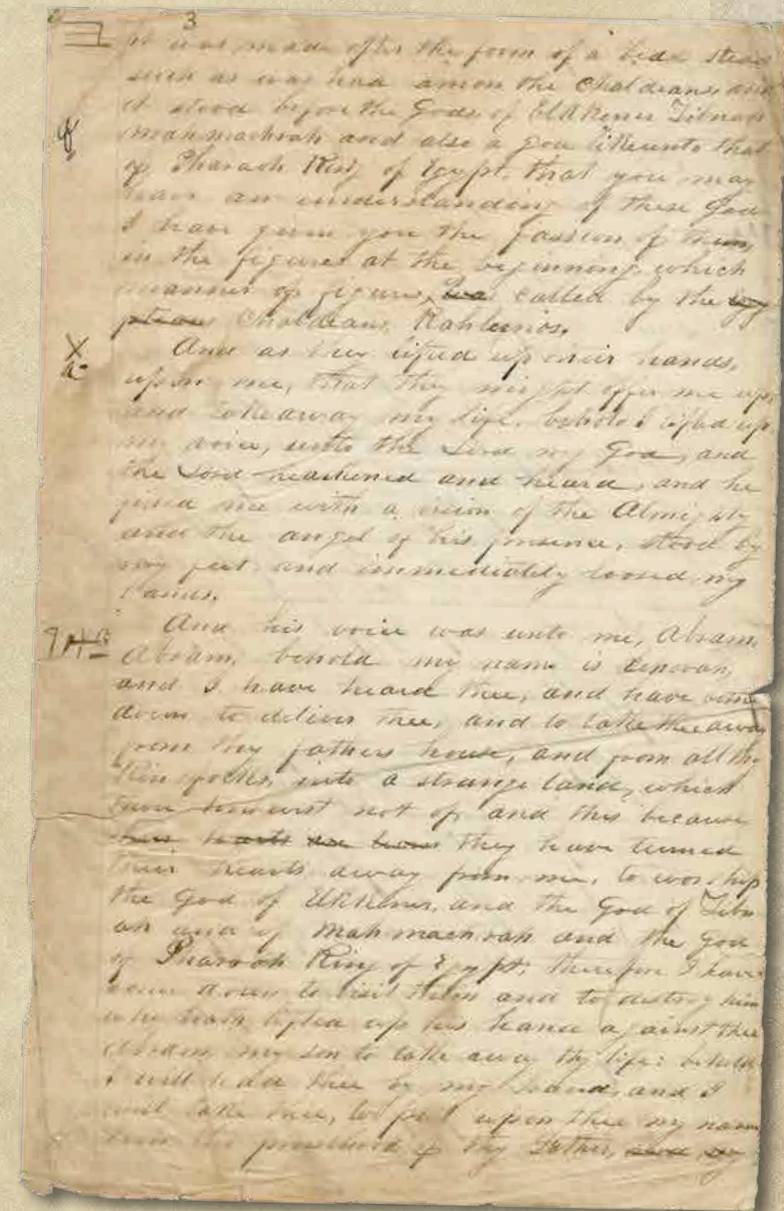 3
it was made after the form of a bedsted
such as was had amon the Chaldeans and
it stood before the Gods of Elkkener Zibnah
Mahmachrah and also a god like unto that
of Pharaoh King of Egypt. that you may
have an understanding of these Gods
I have given you the fassion of them,
in the figures at the beginning which
manner of figures, called by the
Chaldeans, Kahleenos.
And as they lifted up their hands,
upon me, that they might offer me up,
and take away my life, behold I lifted up
my voice, unto the Lord my God, and
the Lord hearkened and heard, and he
filled me with a vision of the Almighty
and the angel of his presence, stood by
my feet and immediately loosed my
bands.
And his voice was unto me, Abram,
Abram, behold my name is Jehovah,
and I have heard thee, and have come
down to deliver thee, and to take thee away
from thy fathers house, and from all thy
kinsfolks, into a strange land, which
thou knowest not of, and this because
they have turned
their hearts away from me, to worship
the God of Elkkener, and the God of Zibn
ah and of Mahmachrah and the God
of Pharaoh King of Egypt, therefore I have
come down to visit them and to destroy him
who hath lifted up his hand against thee
Abram, my son to take away thy life: behold
I will lead thee by my hand, and I
will take thee, to put upon thee my name
even the priesthood of thy Father,